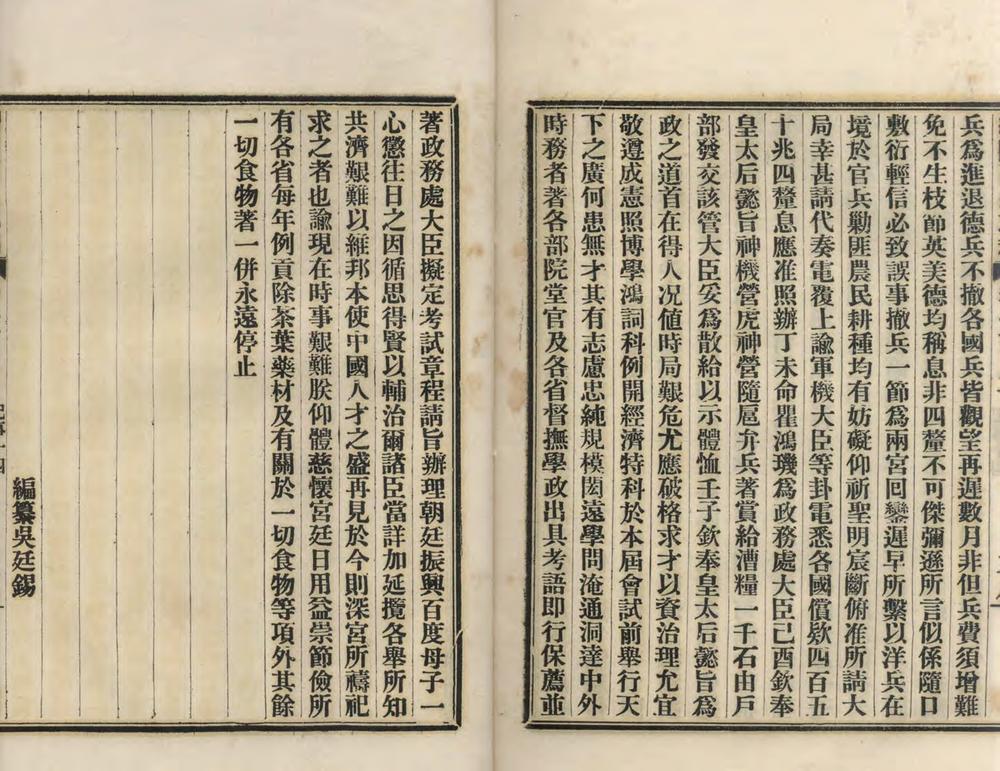 兵爲進退德兵不撤各國兵皆觀望再遲數月非但兵費須增難
免不生枝節英美德均稱息非四釐不可傑彌遜所言似係隨口
敷衍輕信必致誤事撤兵一節爲兩宮回鑾遲早所繫以洋兵在
境於官兵勦匪農民耕種均有妨礙仰祈聖明宸斷俯准所請大
局幸甚請代奏電覆上諭軍機大臣等卦電悉各國償欵四百五
十兆四釐息應准照辦丁未命瞿鴻璣爲政務處大臣己酉欽奉
皇太后懿旨神機營虎神營隨扈弁兵著賞給漕糧一千石由戶
部發交該管大臣妥爲散給以示體恤壬子欽奉皇太后懿旨爲
政之道首在得人況値時局艱危尤應破格求才以資治理允宜
敬遵成憲照博學鴻詞科例開經濟特科於本屆會試前舉行天
下之廣何患無才其有志慮忠純規模閎遠學問淹通洞達中外
時務者著各部院堂官及各省督撫學政出具考語即行保薦並
著政務處大臣擬定考試章程請旨辦理朝廷振興百度母子一
心懲往日之因循思得賢以輔治爾諸臣當詳加延攬各舉所知
共濟艱難以維邦本使中國人才之盛再見於今則深宮所禱祀
求之者也諭現在時事艱難朕仰體慈懷宮廷日用益崇節儉所
有各省每年例貢除茶葉藥材及有關於一切食物等項外其餘
一切食物著一併永遠停止
編纂吳廷錫